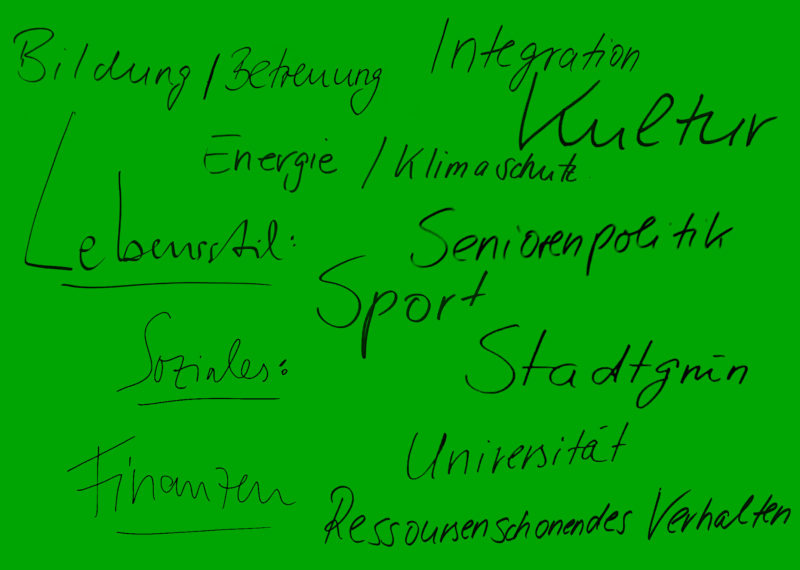 Bildung / Betreuung
Integration
Kultur
Energie / Klimaschutz
Lebensstil:
Seniorenpolitik
Sport
Soziales:
Stadtgrün
Universität
Finanzen
Ressoursenschonendes Verhalten